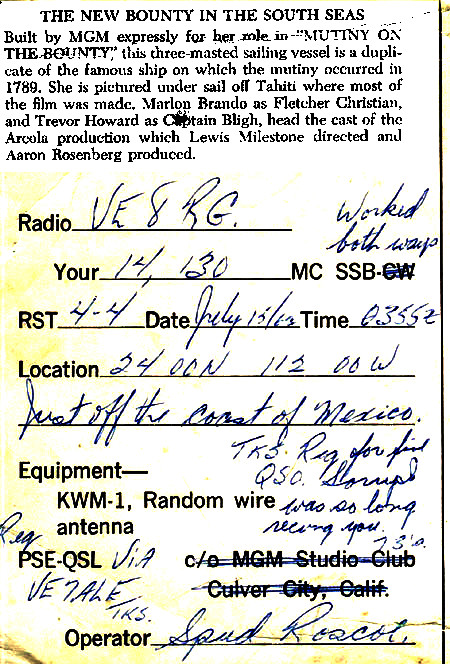 THE NEW BOUNTY IN THE SOUTH SEAS
Built by MGM expressly for her role in "MUTINY ON
THE BOUNTY," this three-masted sailing vessel is a dupli-
cate of the famous ship on which the mutiny occurred in
1789. She is pictured under sail off Tahiti where most of
the film was made. Marlon Brando as Fletcher Christian,
and Trevor Howard as Captain Bligh, head the cast of the
Arcola production which Lewis Milestone directed and
Aaron Rosenberg produced.
Radio VE 8 RG.
Worked
both ways
Your 14,130 MC SSB-CW
RST 4-4 Date July 15/62 Time 0355z
Location 24 00N 112 00W
Just off the coast of Mexico.
TKS. Reg for fine
QSO.
Equipment—
KWM-1, Random wire
antenna
was so long
recvng you.
73's.
Reg
PSE-QSL VIA c/o MGM Studio Club
VE7ALE Culver City, Calif.
TKS.
Operator Spud Roscoe,